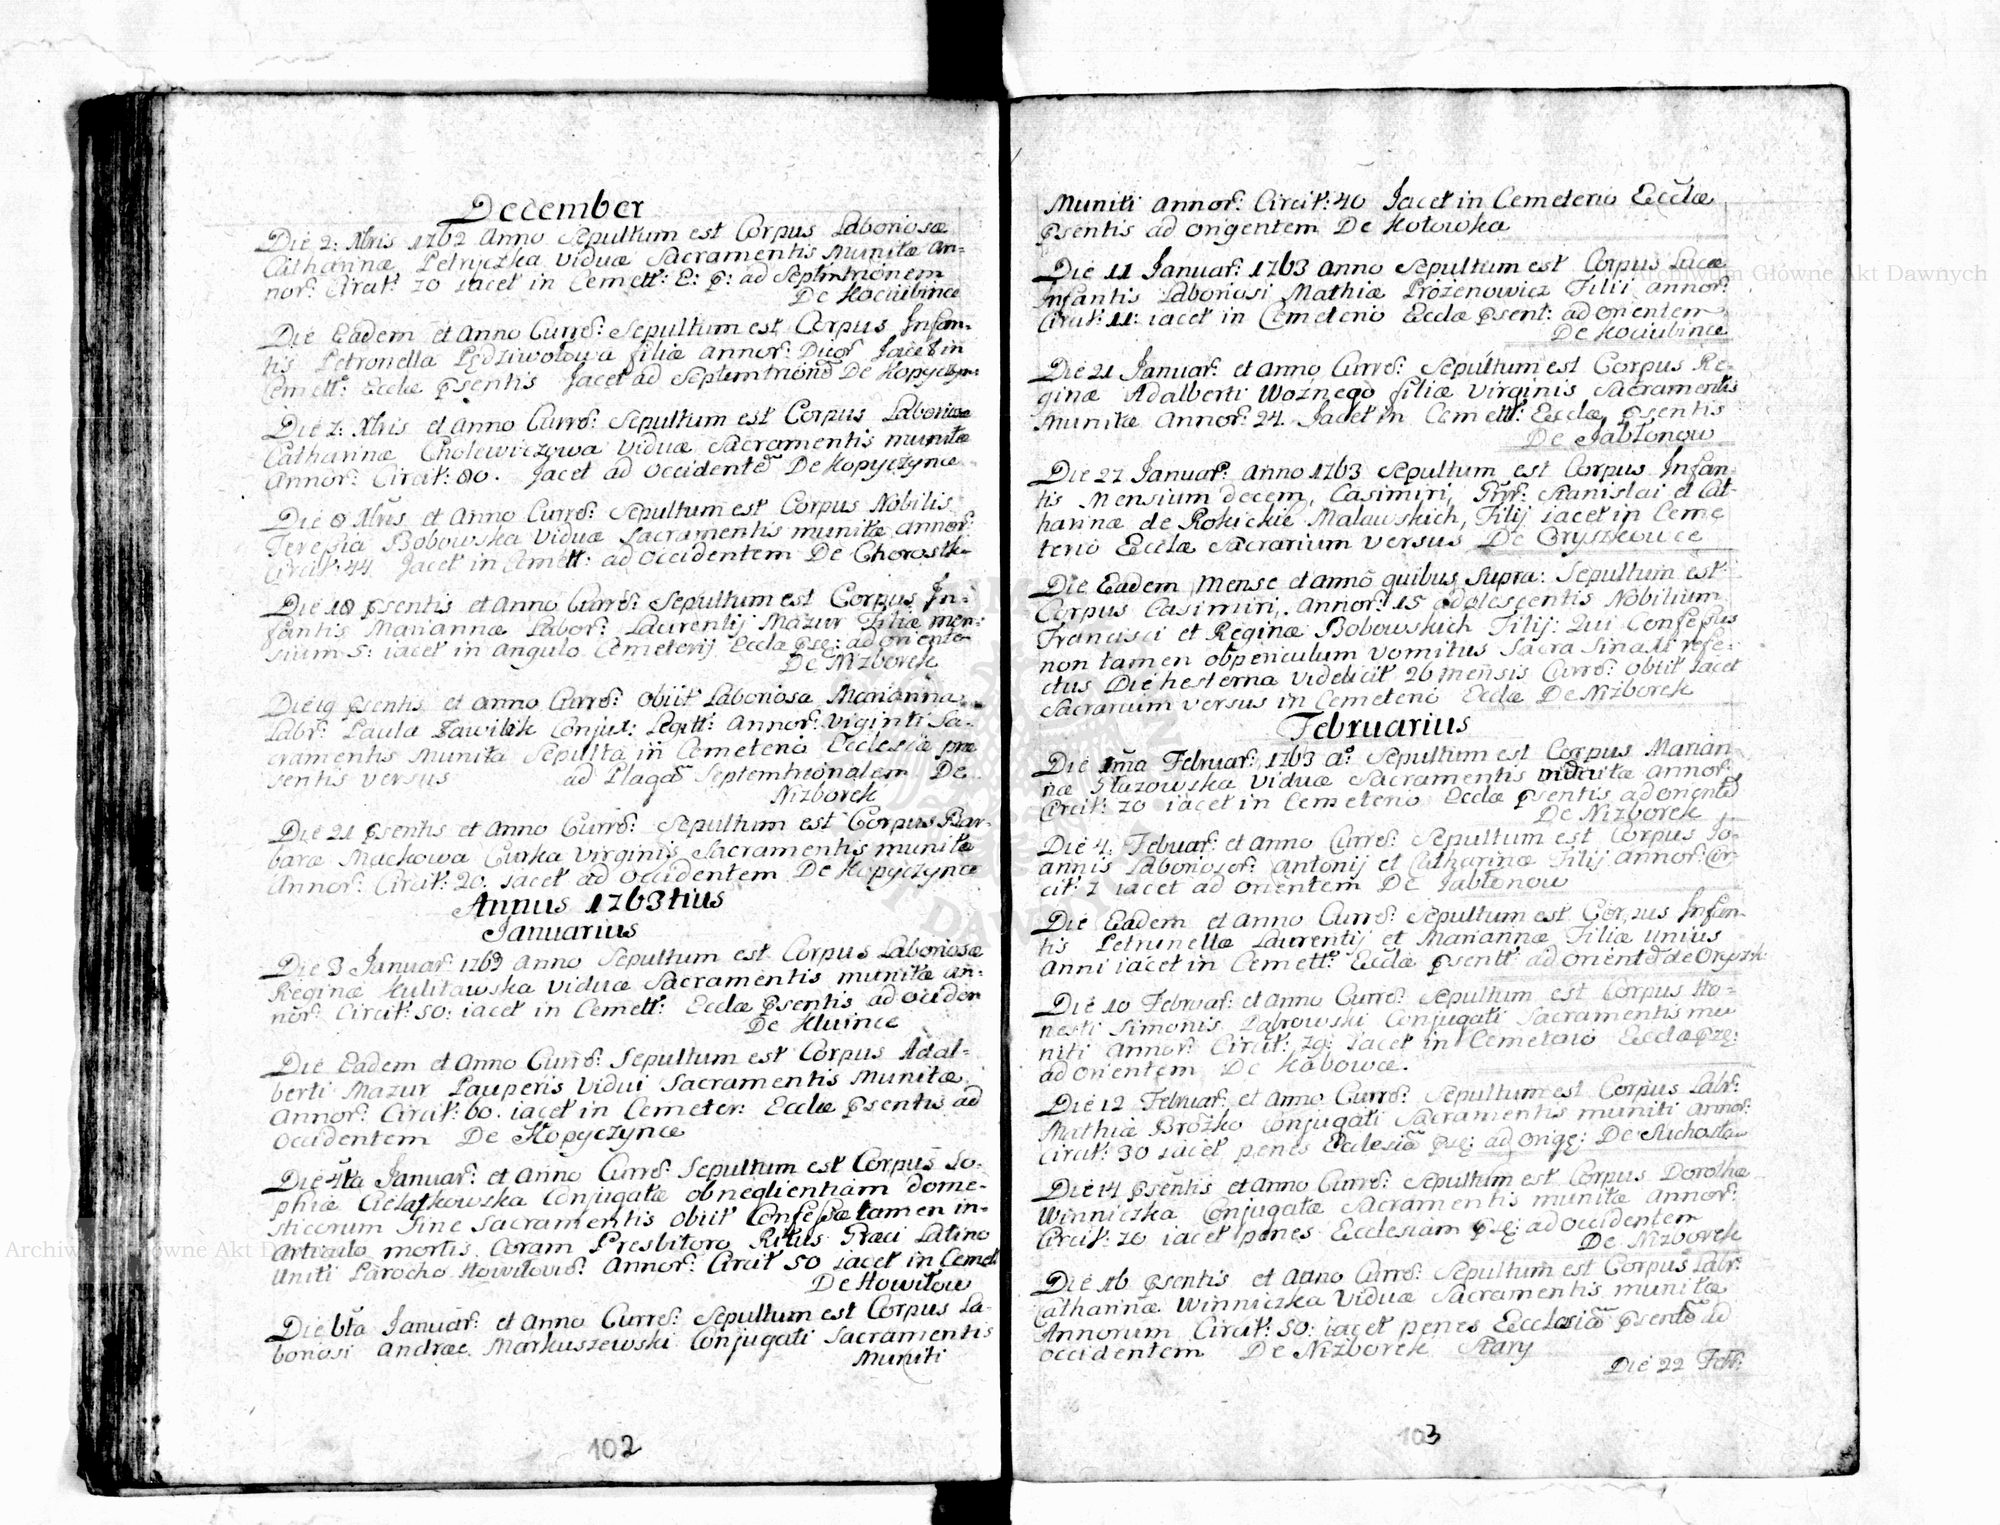 December
Die 2: Xbris 1762 Anno Sepultum est Corpus Laboriosæ
Catharinæ Petryczka Viduæ Sacramentis Munitæ An-
nor: Circit: 70 iacet in Cemett: E: P: ad Septmtrionem
De Kociubince
Die Eadem et Anno Curre: Sepultum est Corpus Infan-
tis Petronella Pędziwołowa filiæ Annor: Duor Jacet in
Cemett: Ecclæ Psentis Jacet ad Septemtrione De Kopyczyn:
Die 7: Xbris et Anno Curre: Sepultum est Corpus Laboriosæ
Catharinæ Cholewiczowa Viduæ Sacramentis munitæ
Annor: Circit: 80. Jacet ad Occidentē De Kopyczynce
Die 8 Xbris et Anno Curre: Sepultum est Corpus Nobilis
Teresia Bobowska Viduæ Sacramentis munitæ annor:
Circit: 44 Jacet in Cmett: ad Occidentem De Chorostk-
Die 18 Psentis et Anno Curre: Sepultum est Corpus In-
fantis Mariannæ Labor: Laurentij Mazur Filiæ men-
sium 5: iacet in angulo Cemeterij Ecclæ Psę: ad oriente
De Nizborek
Die 19 Psentis et anno Curre: Obiit Laboriosa Marianna
Labr: Paula Zawilik Conjux: Legitt: Annor: Viginti Sa-
cramentis Munita Sepulta in Cemeterio Ecclesiæ præ
sentis versus ad Plagā Septemtrionalem De
Nizborek
Die 21 Psentis et Anno Curre: Sepultum est Corpus Bar-
baræ Mackowa Curka Virginis Sacramentis munitæ
Annor: Circit: 20. iacet ad Occidentem De Kopyczynce
Annus 1763tius
Januarius
Die 3 Januar: 1763 Anno Sepultum est Corpus Laboriosæ
Reginæ Kulitawska Viduæ Sacramentis munitæ an-
nor: Circit: 50: iacet in Cemett: Ecclæ Psentis ad Occiden
De Kluince
Die Eadem et Anno Curre: Sepultum est Corpus Adal-
berti Mazur Pauperis Vidui Sacramentis Munitæ
Annor: Circit: 60. iacet in Cemeter: Ecclæ Psentis ad
Occidentem De Kopyczynce
Die 4ta Januar: et Anno Curre: Sepultum est Corpus So-
phiæ Cielątkowska Conjugatæ ob neglientiam dome-
sticorum Sine Sacramentis Obiit Confessa tamen in-
Articulo mortis Coram Presbitero Ritus Græci Latino
Uniti Parocho Howiłovie: Annor: Circit 50 iacet in Cemet
De Howiłow
Die 6ta Januar: et Anno Curre: Sepultum est Corpus La-
boriosi Andræe Markuszewski Conjugati Sacramentis
Muniti
102
Muniti annor: Circit: 40 Jacet in Cemeterio Ecclæ
Psentis ad origentem De Kotowka
Die 11 Januar: 1763 Anno Sepultum est Corpus Lucæ
Infantis Laboriosi Mathiæ Prożenowicz Filii annor:
Circit: 11: iacet in Cemeterio Ecclæ Psent: ad orientem
De Kociubince
Die 21 Januar: et Anno Curre: Sepultum est Corpus Re-
ginæ Adalberti Woźnego filiæ Virginis Sacramentis
Munitæ Annor: 24. Jacet in Cemett: Ecclæ Psentis
De Jabłonow
Die 27 Januar: Anno 1763 Sepultum est Corpus Infan-
tis Mensium decem, Casimiri, Stanislai et Cat-
harinæ de Rokickie Malawskich, Filij iacet in Ceme
terio Ecclæ Sacrarium versus De Oryszkowce
Die Eadem Mense et anno quibus Supra: Sepultum est
Corpus Casimiri, Annor: 15 adolescentis Nobilium
Francisci et Reginæ Bobowskich Filij: Qui Confessus
non tamen ob periculum vomitus Sacra Sinaxi refe-
ctus Die hesterna videlicit 26 mensis Curre: Obiit Jacet
Sacrarium versus in Cemeterio Ecclæ De Nizborek
Februarius
Die 1ma Februar: 1763 ao Sepultum est Corpus Marian
næ Słazowska Viduæ Sacramentis annor:
Circit: 70 iacet in Cemeterio Ecclæ Psentis ad oriente
De Nizborek
Die 4: Febuar: et Anno Curre: Sepultum est Corpus Jo-
annis Laborioser: Antonij et Catharinæ Filij Annor: Cir-
cit: 7 iacet ad Orientem De Jabłonow
Die Eadem et Anno Curre: Sepultum est Corpus Infan-
tis Petrunellæ Laurentij et Mariannæ Filiæ Unius
Anni iacet in Cemett: Ecclæ Psentt ad orientē de Oryszk:
Die 10 Februar: et Anno Curre: Sepultum est Corpus Ho-
nesti Simonis Dąbrowski Conjugati Sacramentis mu
niti Annor: Circit: 79: Jacet in Cemeterio Ecclæ Pzę:
ad Orientem De Habowce.
Die 12 Februar: et Anno Curre: Sepultum est Corpus Labr:
Mathiæ Brożko Conjugati Sacramentis muniti Annor:
Circit: 30 iacet penes Ecclesiā Pzę: ad origę: De Suchosta
Die 14 Psentis et Anno Curre: Sepultum est Corpus Dorothæ
Winniczka Conjugatæ Sacramentis munitæ Annor:
Circit: 70 iacet penes Ecclesiam Pzę: ad Occidentem
De Nizborek
Die 16 Psentis et Anno Curre: Sepultum est Corpus Labr:
Catharinæ Winniczka Viduæ Sacramentis munitæ
Annorum Circit: 50: iacet penes Ecclesiā Psentē ad
Occidentem De Nizborek Stary
Die 22 Febr:
103
Archiwum Główne Akt Dawnych